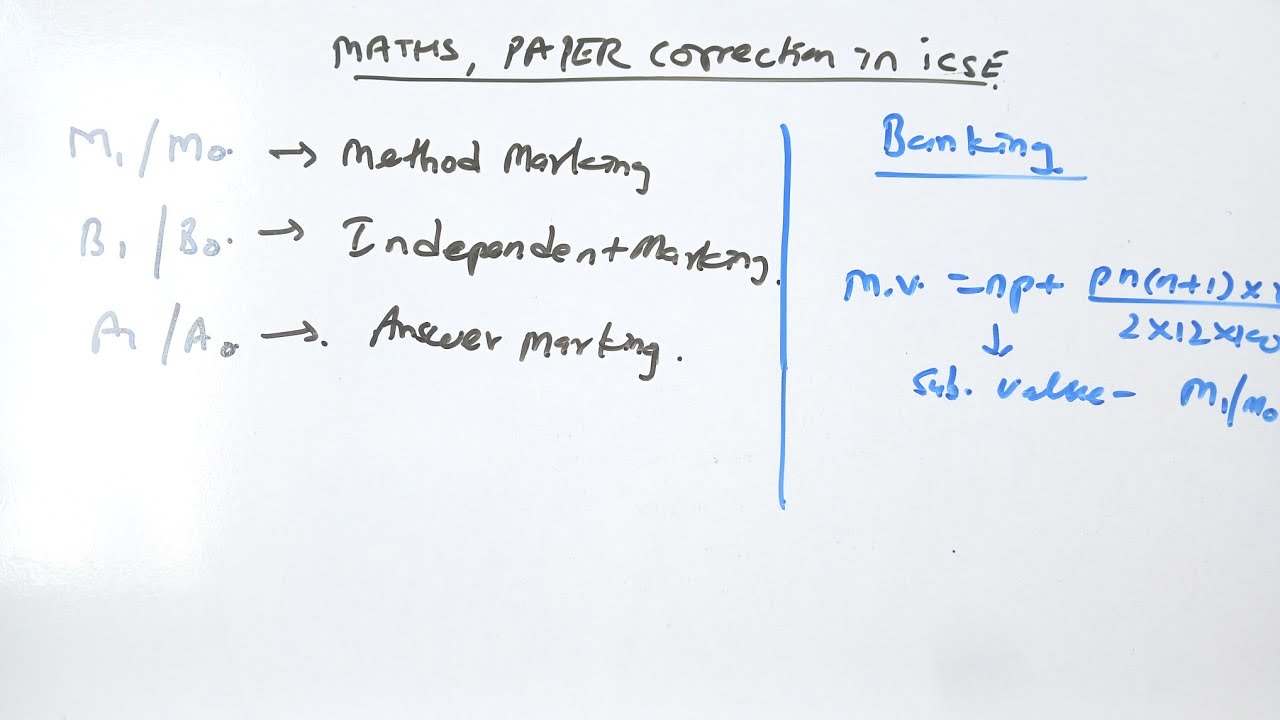 MATHS, PAPER correction in ICSE.
M1/M0. → Method Marking
B1/B0. → Independent Marking.
A1/A0 →. Answer Marking.
Banking.
M.V. = np+ pn(n+1)×
2×12×100
↓
Sub. value - M1/M0